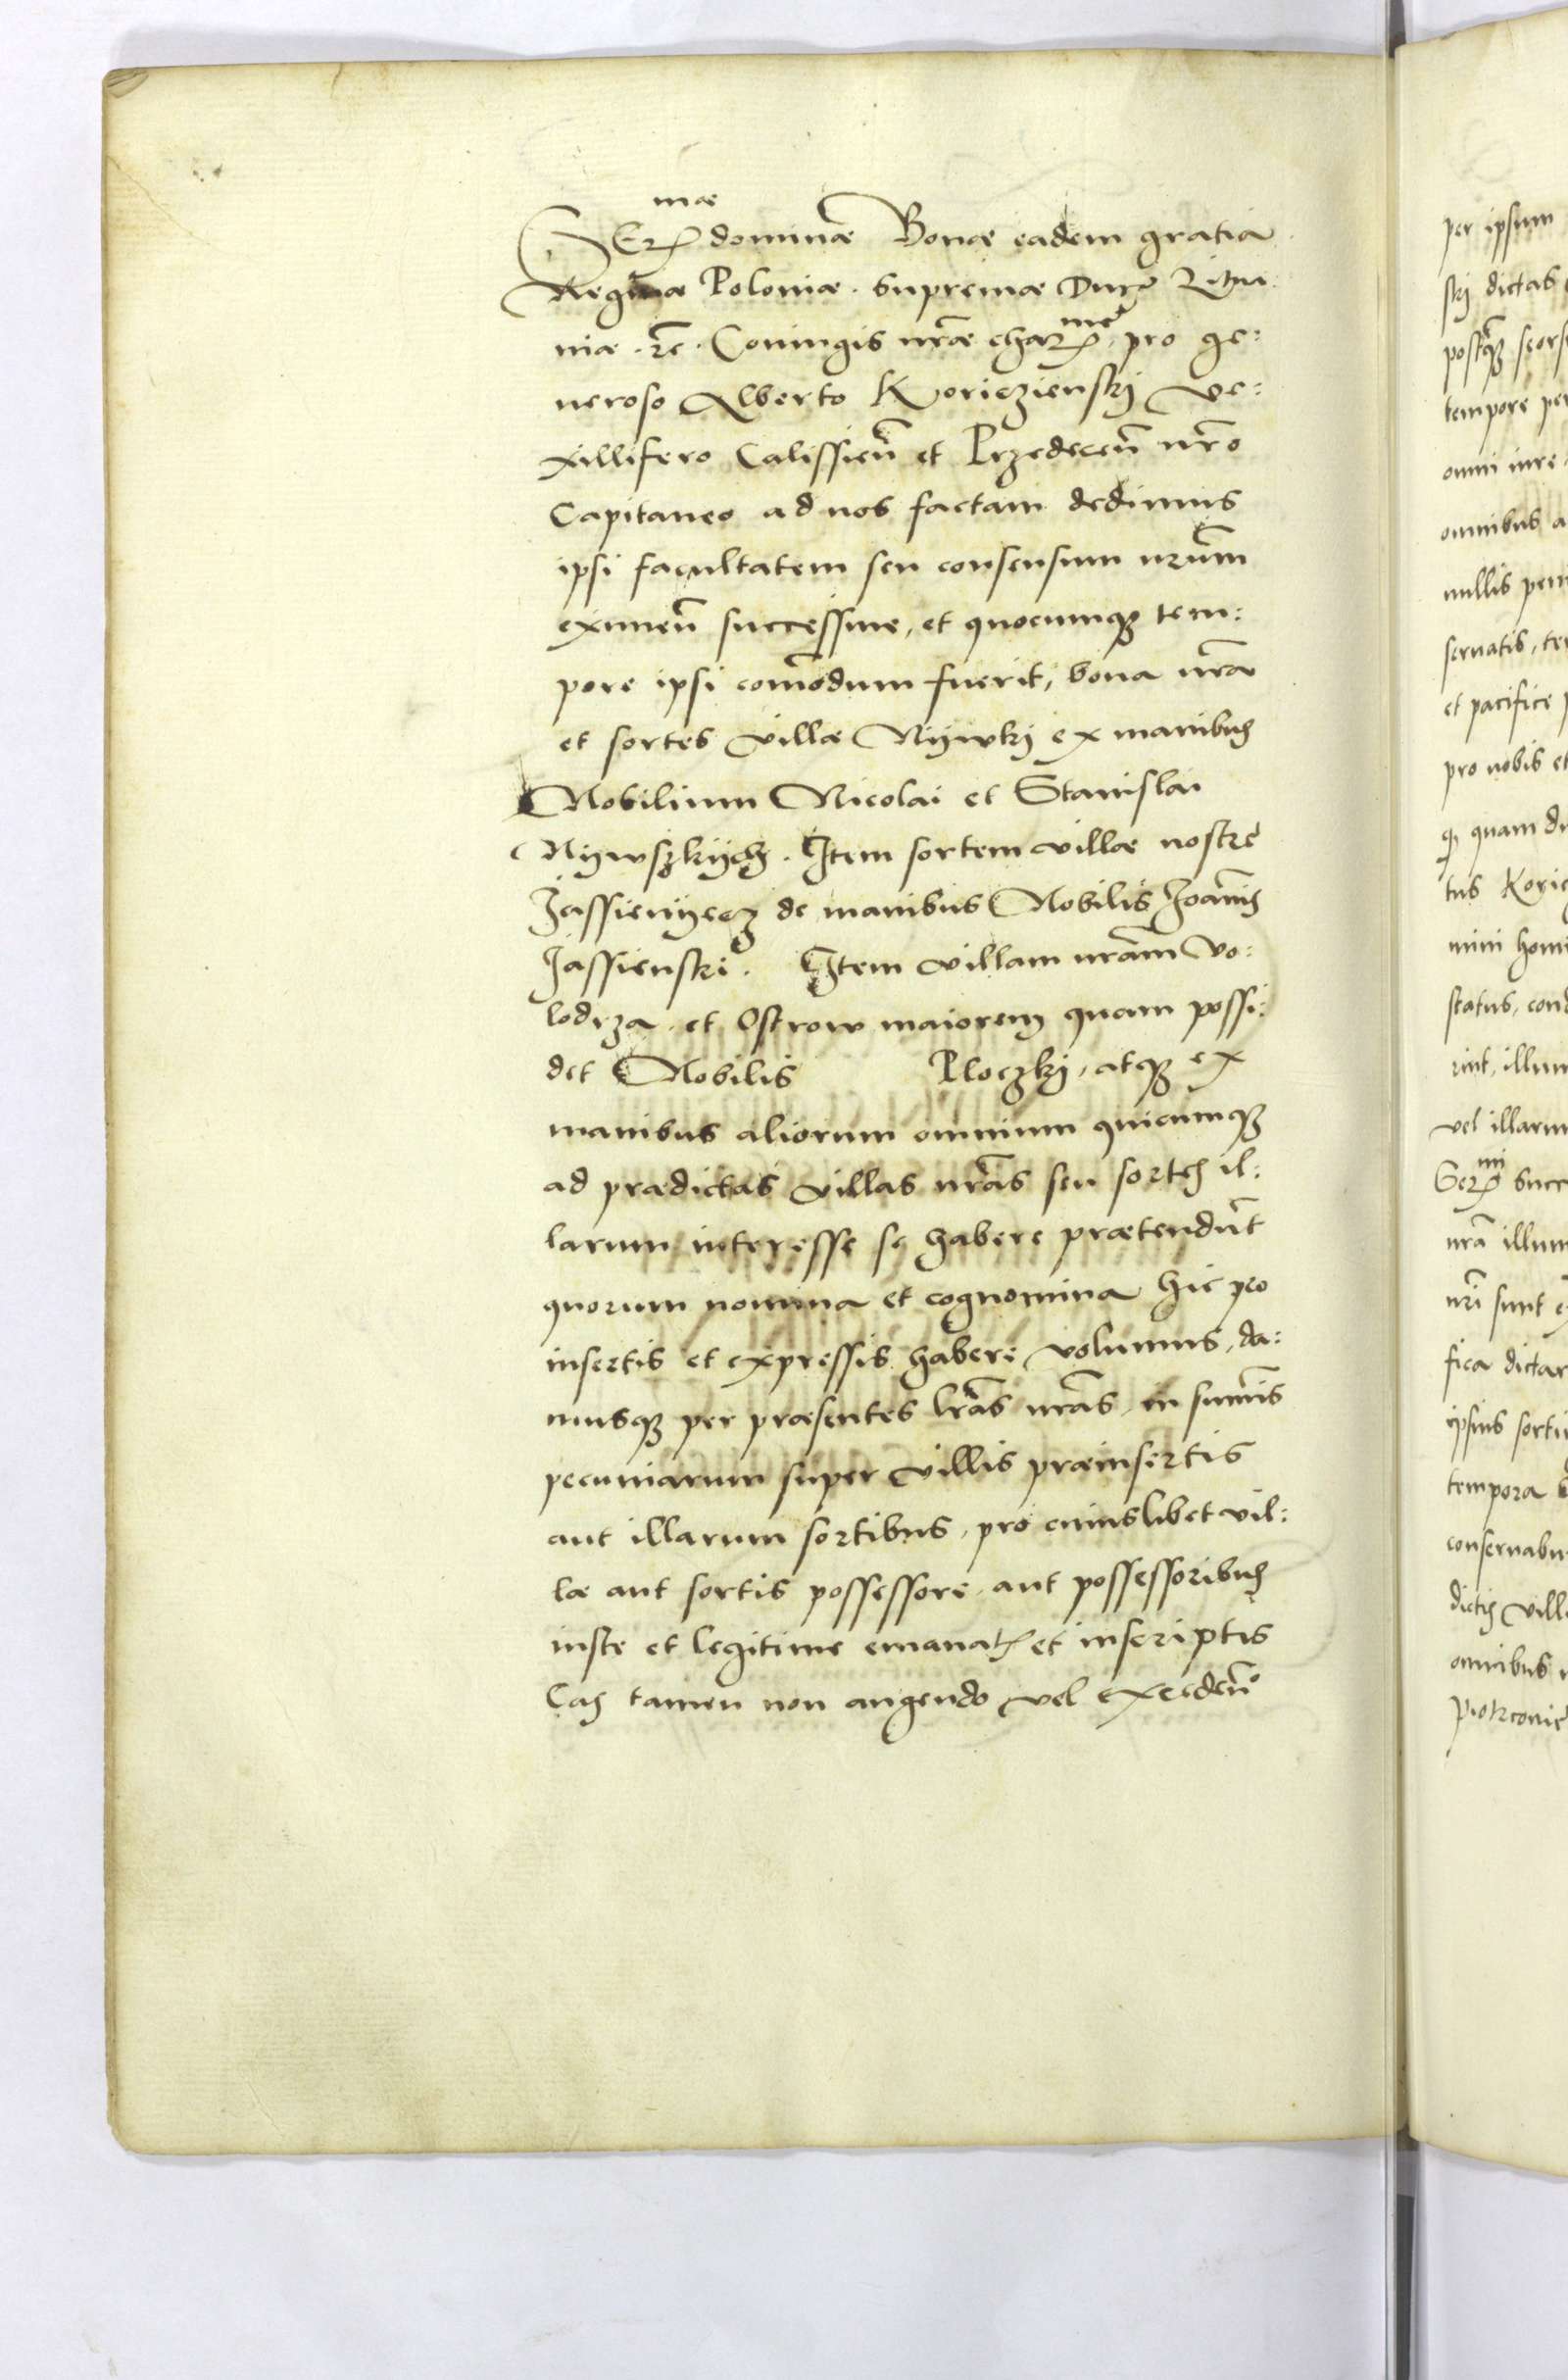 Serꝭ^mæ dominæ Bonæ eadem gratia
Reginæ Poloniæ. Supremæ Ducę Litua
niæ. rc̃. Coniugis nr̃æ charꝭ^mę, pro ge:
neroso Alberto Koriczienskj ve:
xillifero Calissien̄ et Przedecen̄ nr̃o
Capitaneo ad nos factam dedimus
ipsi facultatem seu consensum nr̃um
eximen̄ successiue, et quocumqꝫ tem:
pore ipsi com̄odum fuerit, bona nr̃a
et sortes villæ Nijwkj ex manibuꝭ
Nobilium Nicolai et Stanislai
Nijwszkijch. Item sortem villæ nostrę
Jassienijecz de manibus Nobilis Joan̄iꝭ
Jassienski. Item villam nr̃am Vo:
lodrza et Ostrow maiorem quam possi:
det Nobilis Ploczkj, atqꝫ ex
manibus aliorum omnium quicumqꝫ
ad prædictas villas nr̃as seu sorteꝭ il:
larum interesse se habere prætendūt
quorum nomina et cognomina hic pro
insertis et expressis habere volumus, da:
musqꝫ per præsentes lr̃as nr̃as, in sum̄is
pecuniarum super villis præinsertis
aut illarum sortibus, pro cuiuslibet vil:
læ aut sortis possessore, aut possessoribuꝭ
iuste et legitime emanatꝭ et inscriptis
Eaꝭ tamen non augendo vel exceden̄º
per ipsum
skj dictas
postqꝫ seors
tempore per
omni iure
omnibus a
nullis peni
seruatis, te
et pacifice p
pro nobis et
quam di
tus Koric
mini homi
status, cond
rint, illum
vel illarum
Serꝭ^mi succ
nr̃a illum
nr̃i sunt e
fica dictar
ipsius sorti
tempora
conseruabu
dictiꝭ villa
omnibus
Piotrcouię